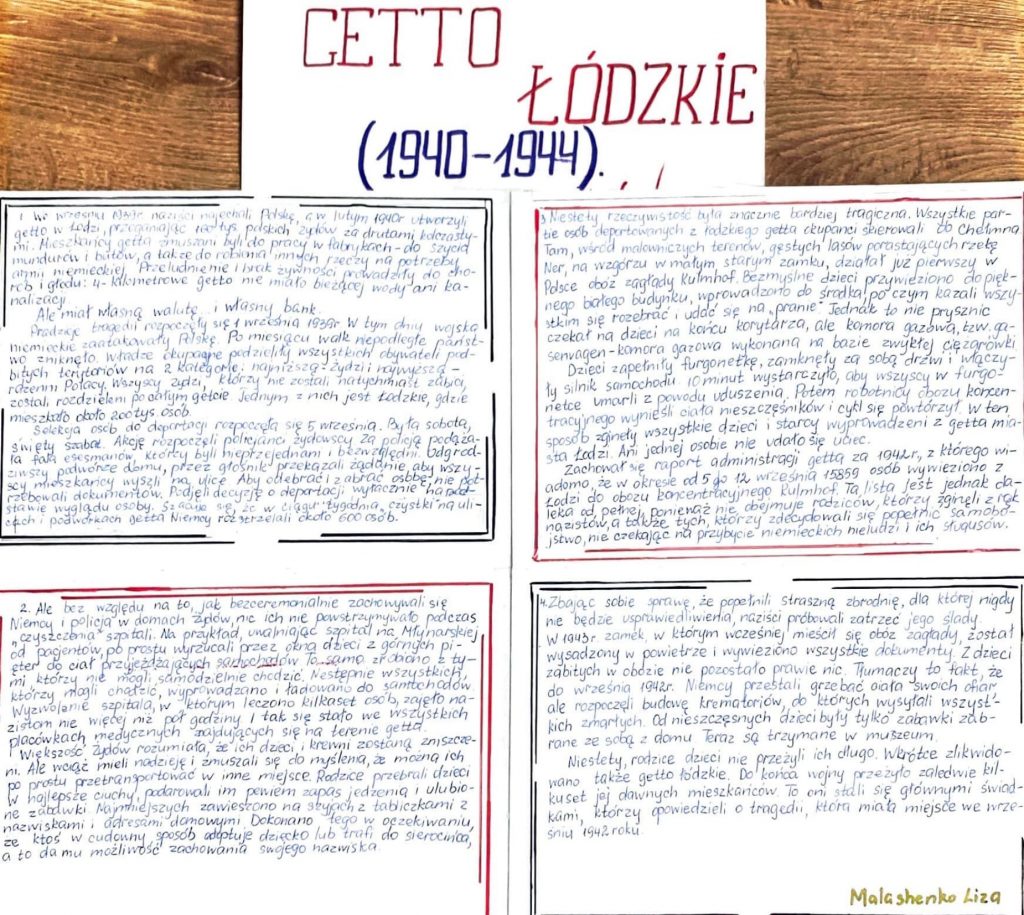 GETTO
ŁÓDZKIE
(1940-1944).
1. We wrześniu 1939r. naziści najechali Polskę, a w lutym 1940r utworzyli
getto w Łodzi, przeganiając tys. polskich żydów za drutami kolczasty-
mi. Mieszkańcy getta zmuszani byli do pracy w fabrykach - do szycia
mundurów i butów, a także do robienia innych rzeczy na potrzeby
armii niemieckiej. Przeludnienie i brak żywności prowadziły do cho-
rób i głodu: 4-kilometrowe getto nie miało bieżącej wody ani ka-
nalizacji.
Ale miał własną walutę... i własny bank.
Pradzieje tragedii rozpoczęły się 1 września 1939r. W tym dniu wojska
niemieckie zaatakowały Polskę. Po miesiącu walk niepodległe państ-
wo zniknęło. Władze okupacyjne podzieliły wszystkich obywateli pod-
bitych terytoriów na 2 kategorie: najniższą - żydzi i najwyższą -
rdzenni Polacy. Wszyscy żydzi, którzy nie zostali natychmiast zabici,
zostali rozdzieleni po całym getcie. Jednym z nich jest Łodzkie, gdzie
mieszkało około 200tys. osób.
Selekcja osób do deportacji rozpoczęła się 5 września. Była sobota,
święty szabat. Akcję rozpoczęli policjanci żydowscy. Za policją podąża-
ła fala esesmanów, którzy byli nieprzejednani i bezwzględni. Odgrod-
ziwszy podwórze domu, przez głośnik przekazali żądanie, aby wszy-
scy mieszkańcy wyszli na ulicę. Aby odebrać i zabrać osobę, nie pot-
rzebowali dokumentów. Podjęli decyzję o deportacji wyłącznie na pod-
stawie wyglądu osoby. Szacuje się, że w ciągu tygodnia „czystki" na uli-
cach i podwórkach getta Niemcy rozstrzelali około 600 osób.
2. Ale bez względu na to, jak bezceremonialnie zachowywali się
Niemcy i policja w domach żydów, nic ich nie powstrzymywało podczas
„czyszczenia" szpitali. Na przykład, uwalniając szpital na Młynarskiej
od pacjentów, po prostu wyrzucali przez okna dzieci z górnych pi-
ęter do ciał przyjeżdżających samochodów. To samo zrobiono z ty-
mi którzy nie mogli samodzielnie chodzić. Następnie wszystkich,
którzy mogli chodzić, wyprowadzano i ładowano do samochodów.
Wyzwolenie szpitala, w którym leczono kilkaset osób, zajęło na-
zistom nie więcej niż pół godziny. I tak się stało we wszystkich
placówkach medycznych znajdujących się na terenie getta.
Większość żydów rozumiała, że ich dzieci i krewni zostaną zniszcze-
ni. Ale wciąż mieli nadzieję i zmuszali się do myślenia, że można ich
po prostu przetransportować w inne miejsce. Rodzice przebrali dzieci
w najlepsze ciuchy, podarowali im pewiem zapas jedzenia i ulubio-
ne zabawki. Najmniejszych zawieszono na szyjach z tabliczkami z
nazwiskami i adresami domowymi. Dokonano tego w oczekiwaniu,
że ktoś w cudowny sposób adoptuje dziecko lub trafi do sierocińca,
a to da mu możliwość zachowania swojego nazwiska.
3. Niestety rzeczywistość była znacznie bardziej tragiczna. Wszystkie par-
tie osób deportowanych z łodzkiego getta okupanci skierowali do Chełmna.
Tam, wśród malowniczych terenów, gęstych lasów porastających rzekę
Ner, na wzgórzu w małym starym zamku, działał już pierwszy w
Polsce obóz zagłady Kulmhof. Bezmyślne dzieci przywieziono do pięk-
nego białego budynku, wprowadzono do środka, po czym kazali wszy-
stkim się rozebrać i udać się na „pranie". Jednak to nie prysznic
czekał na dzieci na końcu korytarza, ale komora gazowa, tzw. ga-
senvagen - komora gazowa wykonana na bazie zwykłej ciężarówki
Dzieci zapełniły furgonetkę, zamknęły za sobą drzwi i włączy-
ły silnik samochodu. 10 minut wystarczyło, aby wszyscy w furgo-
netce umarli z powodu uduszenia. Potem robotnicy obozu koncen-
tracyjnego wynieśli ciała nieszczęśników i cykl się powtórzył. W ten
sposób zginęły wszystkie dzieci i starcy wyprowadzeni z getta mia-
sta Łodzi. Ani jednej osobie nie udało się uciec.
Zachował się raport administracji getta za 1942r, z którego wi-
adomo, że w okresie od 5 do 12 września 15859 osób wywieziono z
Łodzi do obozu koncentracyjnego Kulmhof. Ta lista jest jednak da-
leka od pełnej, ponieważ nie obejmuje rodziców, którzy zginęli z rąk
nazistów, a także tych, którzy zdecydowali się popełnić samobó-
jstwo, nie czekając na przybycie niemieckich nieludzi i ich sługusów.
4. Zbając sobie sprawę, że popełnili straszną zbrodnię, dla której nigdy
nie będzie usprawiedliwienia, naziści próbowali zatrzeć jego ślady.
W 1943r. zamek, w którym wcześniej mieścił się obóz zagłady, został
wysadzony w powietrze i wywieziono wszystkie dokumenty. Z dzieci
zabitych w obozie nie pozostało prawie nic. Tłumaczy to fakt, że
do września 1942r. Niemcy przestali grzebać ciała swoich ofiar
ale rozpoczęli budowę krematoriów, do których wysyłali wszyst-
kich zmarłych. Od nieszczęsnych dzieci były tylko zabawki zab-
rane ze sobą z domu. Teraz są trzymane w muszeum.
Niestety, rodzice dzieci nie przeżyli ich długo. Wkrótce zlikwido-
wano także getto łódzkie. Do końca wojny przeżyło zaledwie kil-
kuset jej dawnych mieszkańców. To oni stali się głównymi świad-
kami, którzy opowiedzieli o tragedii, która miała miejsce we wrze-
śniu 1942 roku.
Malashenko Liza